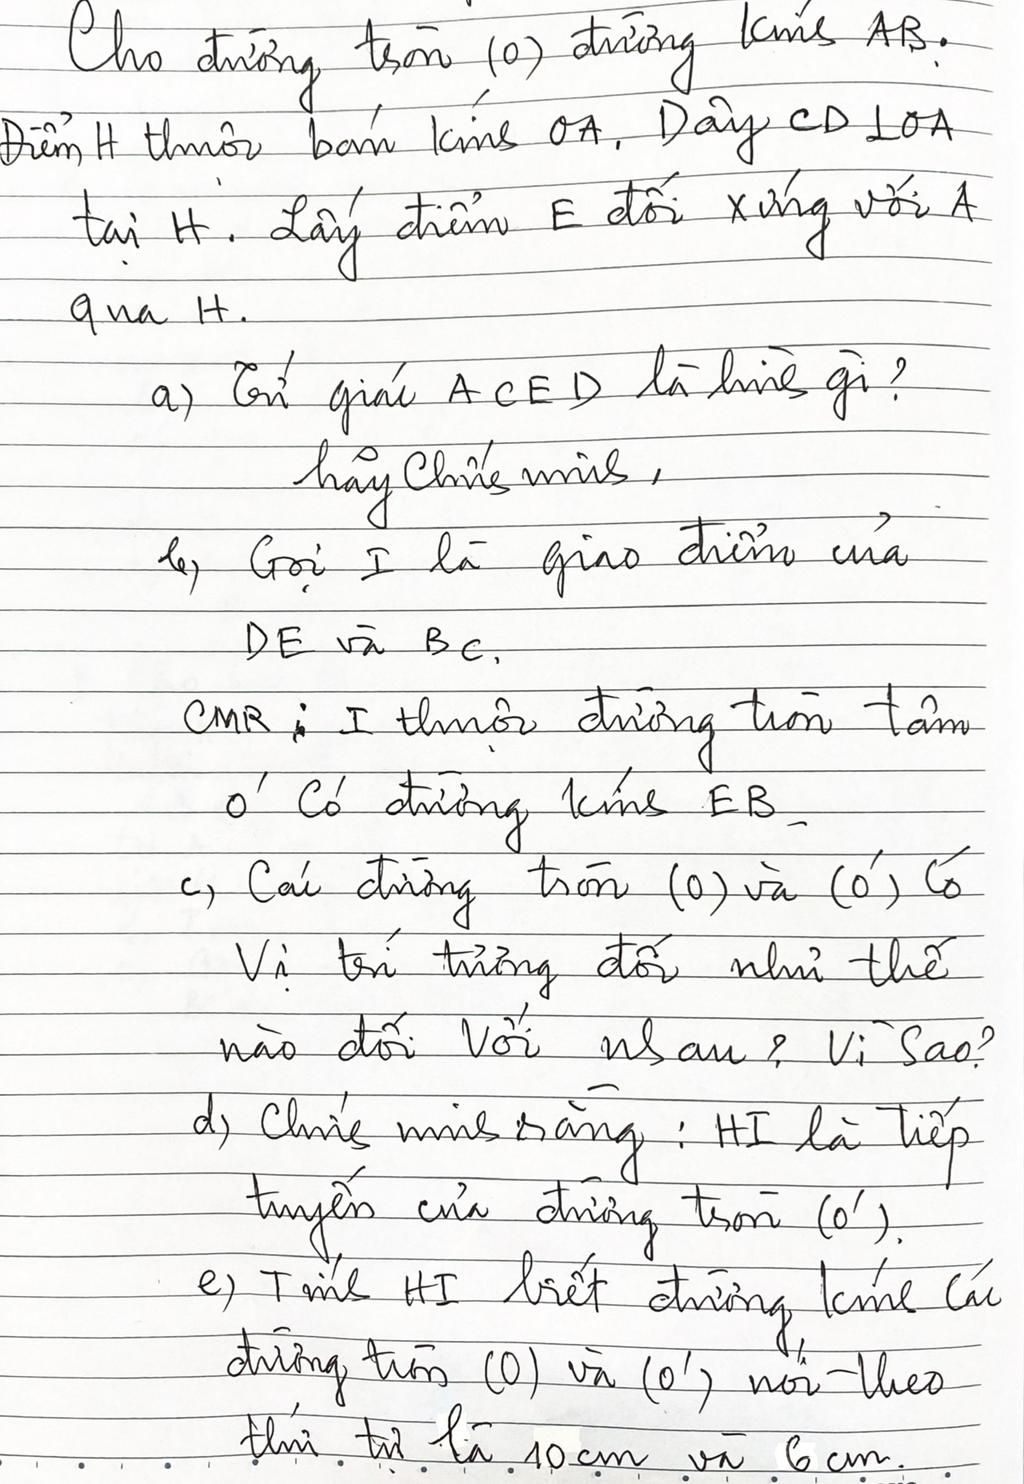 Cho đường tròn (O) đường kính AB.
Điểm H thuộc bán kính OA, Dây CD ⊥ OA
tại H. Lấy điểm E đối xứng với A
qua H.
a) Tứ giác ACED là hình gì?
hãy Chứng minh,
b) Gọi I là giao điểm của
DE và BC.
CMR : I thuộc đường tròn tâm
O' Có đường kính EB_
c) Các đường tròn (O) và (O') Có
Vị trí tương đối như thế
nào đối Với nhau? Vì Sao?
d) Chứng minh rằng : HI là Tiếp
tuyến của đường tròn (O').
e) Tính HI biết đường kính Các
đường tròn (O) và (O') nói-theo
thứ tự là 10 cm và 6 cm.